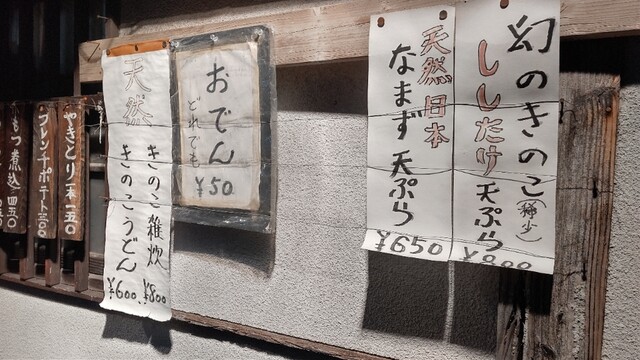 幻のきのこ(稀少)
ししたけ天ぷら
¥800
天然日本
なまず天ぷら
¥650
おでん
どれでも
¥50
天然
きのこ雑炊
¥800
きのこうどん
¥600
やきとり一本一五〇
フレンチポテト三〇〇
もつ煮込 四五〇